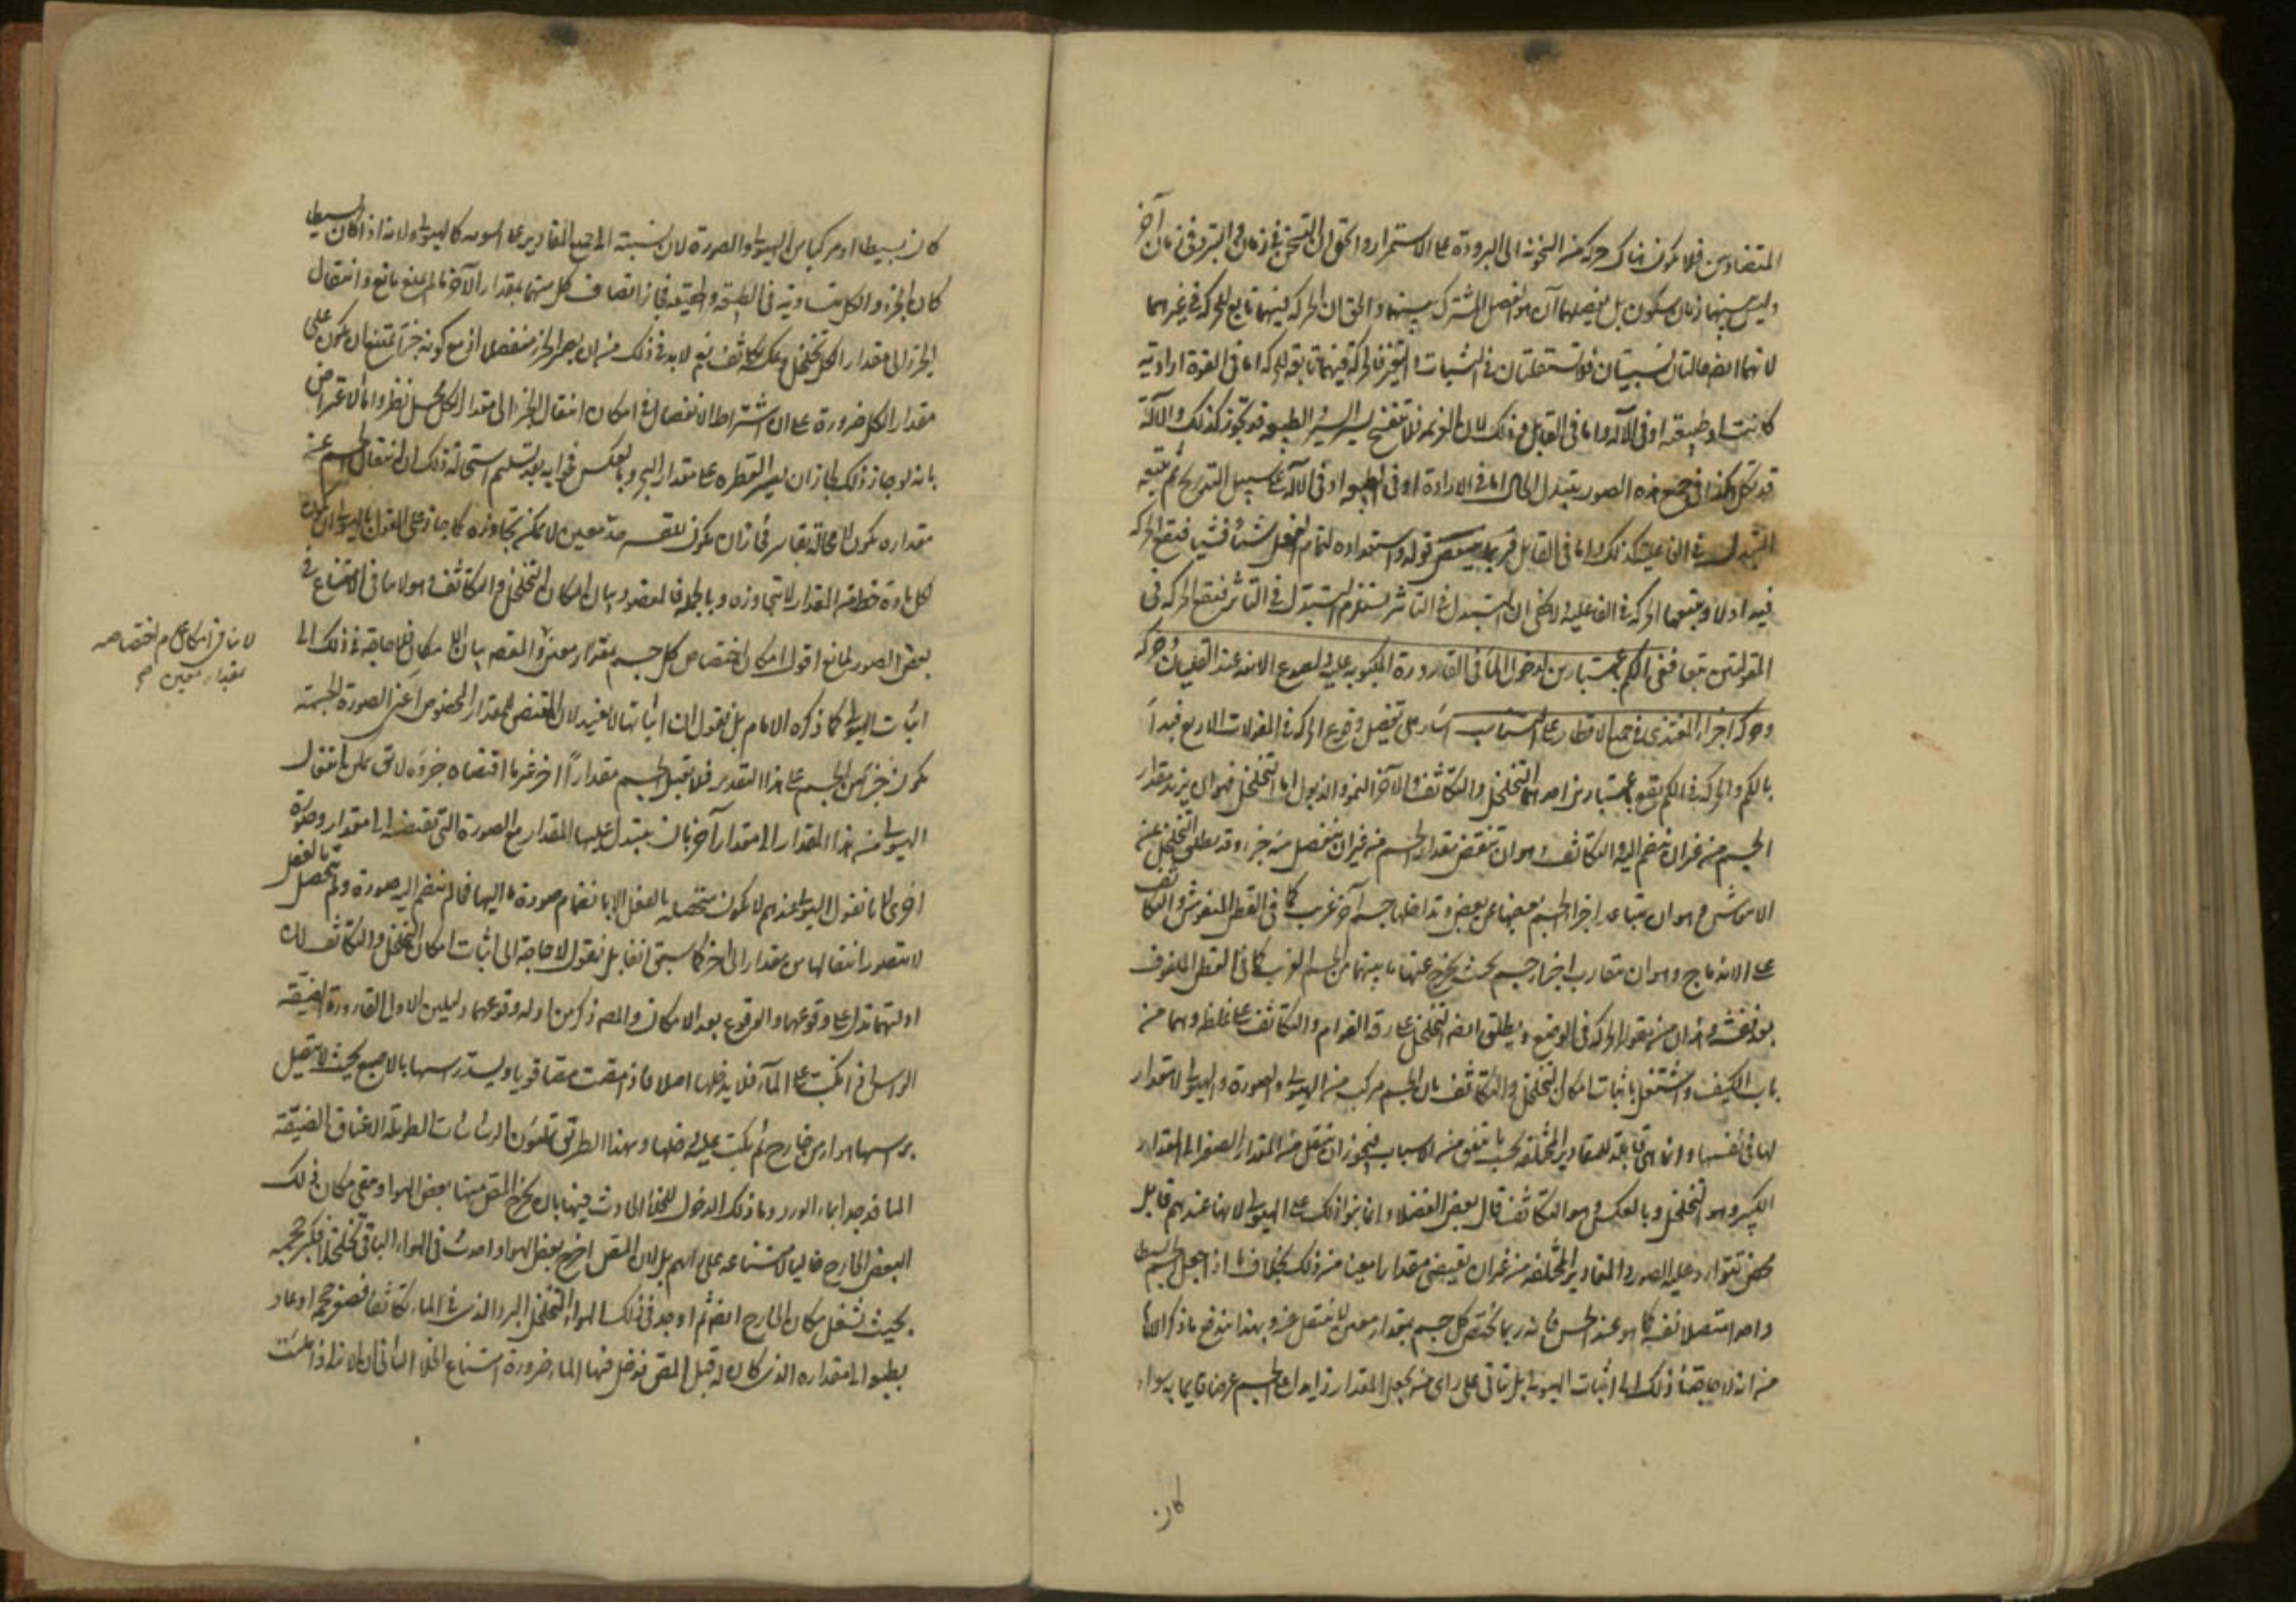 المتضادين فلا يكون هناك حركة من السخونة الى البرودة على الاستمرار والحق ان التسخن في زمان والتبرد في زمان آخر
وليس بينهما زمان سكون بل يفصلهما آن هو الفصل المشترك بينهما والحق ان الحركة فيهما تابع للحركة في غيرهما
لانهما ايضا حالتان نسبيتان غير مستقلتان في الثبات والتغير فالحركة فيهما تابعة للحركة اما في القوة ارادية
كانت او طبيعية او في الآلة واما في القابل وذلك لان العزيمة قد تنفسخ يسيرا يسيرا والطبيعة قد تخور كذلك والآلة
قد تكل هكذا ففي جميع هذه الصور يتبدل الحال اما في الارادة او في الطبيعة او في الآلة على سبيل التدريج ثم يتبعه
التبدل في الفاعلية كذلك واما في القابل فربما ينقص قبوله واستعداده لتمام الفعل شيئا فشيئا فتقع الحركة
فيه اولا ويتبعها الحركة في الفاعلية ولا يخفى ان التبدل في التأثير يستلزم التبدل في التأثر فتقع الحركة في
المقولتين تبعا ففي الكم باعتبارين لدخول الماء في القارورة المكبوبة عليه وتصدع الآنية عند الغليان وحركة
وحركة اجزاء المغتذي في جميع الاقطار على التناسب اشار الى تفصيل وقوع الحركة في المقولات الاربع فبدأ
بالكم والحركة في الكم تقع باعتبارين احدهما التخلخل والتكاثف والآخر النمو والذبول اما التخلخل فهو ان يزيد مقدار
الجسم من غير ان ينضم اليه والتكاثف وهو ان ينتقص مقدار الجسم من غير ان ينفصل منه جزء وقد يطلق التخلخل على
الانتفاش وهو ان يتباعد اجزاء الجسم بعضها عن بعض ويداخلها جسم آخر غريب كما في القطن المنفوش والتكاثف
على الاندماج وهو ان يتقارب اجزاء جسم بحيث يخرج عنها ما بينهما من الجسم الغريب كما في القطن الملفوف
بعد نفشه وهذان من مقولة الحركة في الوضع ويطلق ايضا التخلخل على رقة القوام والتكاثف على غلظه وهما من
باب الكيف واشتغل باثبات امكان التخلخل والتكاثف بان الجسم مركب من الهيولى والصورة والهيولى لا مقدار
لها في نفسها وانما هي قابلة للمقادير المختلفة بحسب ما يتفق من الاسباب فيجوز ان تنتقل من المقدار الصغير الى المقدار
الكبير وهو التخلخل وبالعكس وهو التكاثف قال بعض الفضلاء وانما بنوا ذلك على الهيولى لانها عندهم قابل
محض تتوارد عليه الصور والمقادير المختلفة من غير ان يقتضي مقدارا معينا من ذلك بخلاف ما اذا جعل الجسم البسيط
واحدا متصلا في نفسه كما هو عند الحس فانه ربما يختص كل جسم بمقدار معين لا ينتقل عنه وبهذا يندفع ما ذكر الامام
من انه لا حاجة في ذلك الى اثبات الهيولى بل يتأتى على راي من يجعل المقدار زايدا على الجسم عرضا قايما به سواء
كان
كان بسيطا او مركبا من الهيولى والصورة لان نسبته الى جميع المقادير على السوية كالهيولى ولانه اذا كان البسيط
كان الجزء والكل متساوية في الطبيعة والحقيقة فجاز اتصاف كل منهما بمقدار الآخر ما لم يمنع مانع وانتقال
الجزء الى مقدار الكل تخلخل وعكسه تكاثف نعم لا بد في ذلك من ان يصير الجزء منفصلا اذ مع كونه جزءا يمتنع ان يكون على
مقدار الكل ضرورة على ان اشتراط الانفصال في امكان انتقال الجزء الى مقدار الكل محل نظر واما الاعتراض
بانه لو جاز ذلك لجاز ان يصير القطرة على مقدار البحر وبالعكس فجوابه بعد تسليم استحالة ذلك ان انتقال الجسم عن
مقداره يكون لا محالة بقاسر فجاز ان يكون للقسر حد معين لا يمكن تجاوزه كما جاز على القول بالهيولى ان يكون
لكل مادة حظ من المقدار لا يتجاوزه وبالجملة فالمقصود بيان امكان التخلخل والتكاثف وهو لا ينافي الامتناع في
بعض الصور لمانع اقول امكان اختصاص كل جسم بمقدار معين والمقصود بيان الامكان فلا حاجة في ذلك الى
لا ينافي امكان عدم اختصاصه
بمقدار معين صح
اثبات الهيولى كما ذكره الامام بل نقول ان اثباتها لا يفيد لان المقتضي للمقدار المخصوص اعني الصورة الجسمية
يكون جزءا من الجسم على هذا التقدير فلا يقبل الجسم مقدارا آخر غير ما اقتضاه جزؤه لا يقال يمكن انتقال
الهيولى من هذا المقدار الى مقدار آخر بان يتبدل عليها المقدار مع الصورة التي تقتضيه الى مقدار وصورة
اخرى لانا نقول الهيولى عندهم لا تكون متحصلة بالفعل الا بانضمام صورة ما اليها فما لم ينضم اليه صورة ولم تتحصل بالفعل
لا يتصور انتقالها من مقدار الى آخر كما سبق آنفا بل نقول لا حاجة الى اثبات امكان التخلخل والتكاثف لان
ادلتهما تدل على وقوعهما والوقوع بعد الامكان والمصنف ذكر من ادلة وقوعهما دليلين الاول القارورة الضيقة
الراس اذا كبت على الماء فلا يدخلها اصلا فاذا مصت مصا قويا ويسد راسها بالاصبع بحيث لا يتصل
براسها هواء من خارج ثم يكب عليه دخلها وبهذا الطريق تملؤن الرشاشات الطويلة الاعناق الضيقة
المنافذ جدا بماء الورد وما ذلك الدخول للخلاء الحادث فيها بان يخرج المص منها بعض الهواء وبقي مكان ذلك
البعض الخارج خاليا لامتناعه على رايهم بل لان المص اخرج بعض الهواء واحدث في الهواء الباقي تخلخلا فكبر حجمه
بحيث شغل مكان الخارج ايضا ثم اوجد في ذلك الهواء المتخلخل البرد الذي في الماء تكاثفا فصغر حجمه او عاد
بطبعه الى مقداره الذي كان له قبل المص فدخل فيها الماء ضرورة امتناع الخلاء الثاني ان الآنية اذا ملئت